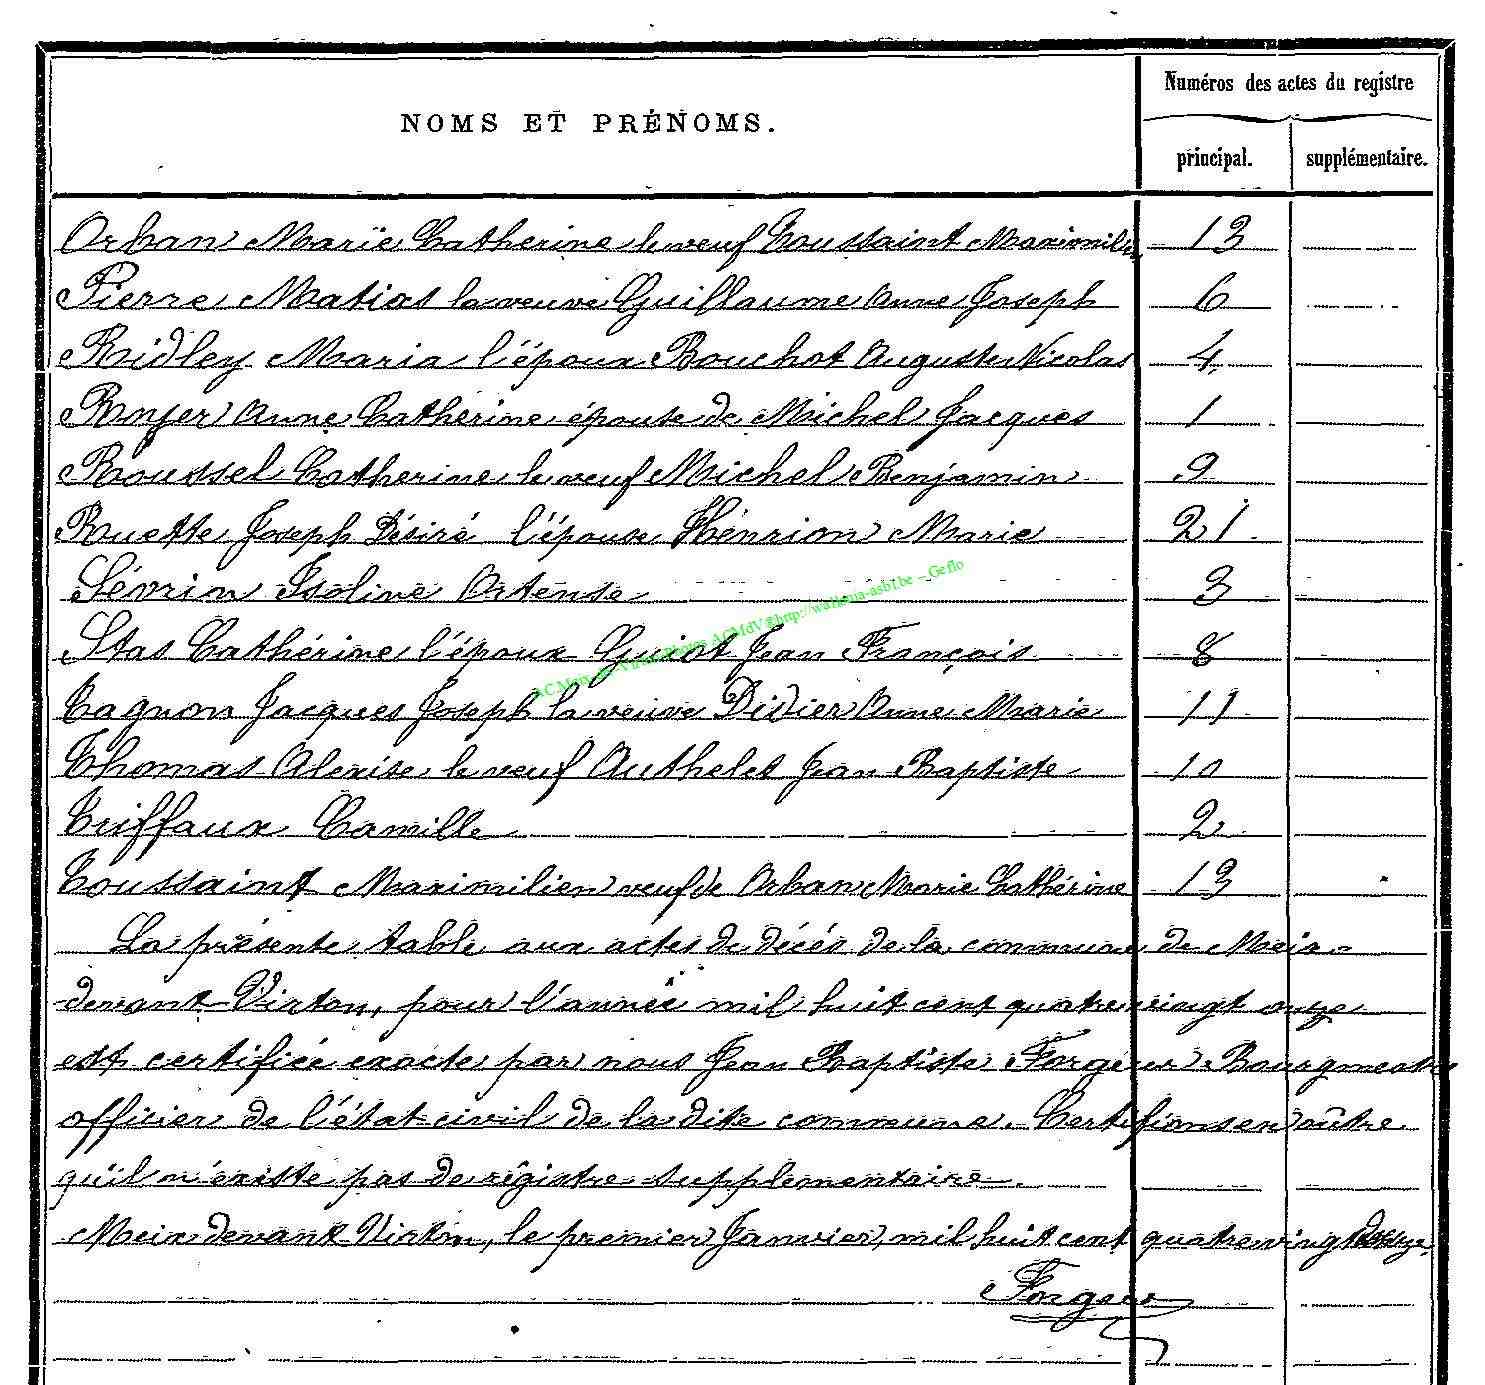 NOMS ET PRÉNOMS.
Numéros des actes du registre
principal. supplémentaire.
Orban Marie Catherine le veuf Toussaint Maximilien 13
Pierre Matias la veuve Guillaume Anne Joseph 6
Ridley Maria l'époux Bouchot Auguste Nicolas 4
Royer Anne Catherine épouse de Michel Jacques 1
Roussel Catherine le veuf Michel Benjamin 9
Ruette Joseph Désiré l'épouse Hénrion Marie 21
Sévrin Isoline Ortense 3
Stas Cathérine l'époux Guiot Jean François 8
Tagnon Jacques Joseph la veuve Didier Anne Marie 11
Thomas Alexise le veuf Authelet Jean Baptiste 10
Triffaux Camille 2
Toussaint Maximilien veuf de Orban Marie Cathérine 13
La présente table aux actes de décés de la commune de Meix-
devant-Virton, pour l'année mil huit cent quatrevingt onze
est certifiée exacte par nous Jean Baptiste Forgeur Bourgmestre
officier de l'état civil de la dite commune. Certifions en oûtre
qu'il n'existe pas de régistre supplémentaire.
Meix devant Virton, le premier Janvier, mil huit cent quatrevingt douze.
Forgeur
http://wallonia-asbl.be - Geflo